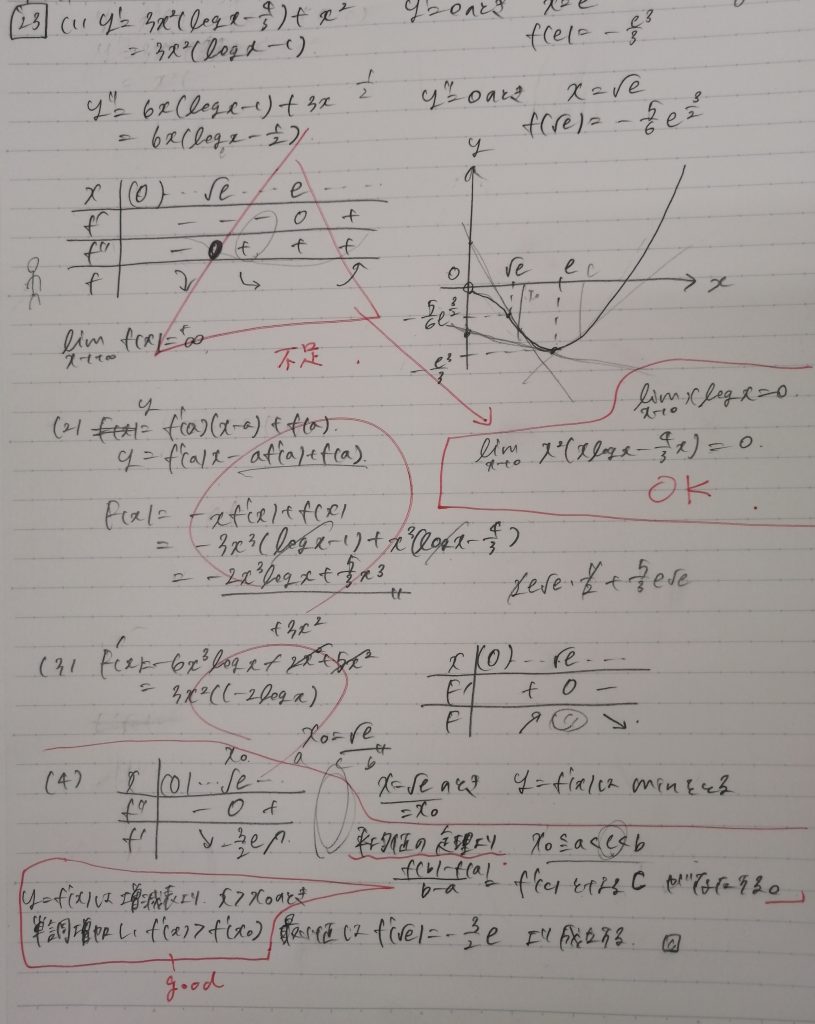 23 (1) y' = 3x²(log x - 4/3) + x²
= 3x²(log x - 1)
y'=0のとき x=e
f(e) = -e³/3
y'' = 6x(log x - 1) + 3x
= 6x(log x - 1/2)
1/2
y''=0のとき x = √e
f(√e) = -5/6 e^{3/2}
x (0) ... √e ... e ...
f' - - - 0 +
f'' - 0 + + +
f ↘ ↘ ↗
lim x→+∞ f(x) = +∞
不足.
y
0 √e e c x
x₀
-5/6 e^{3/2}
-e³/3
lim x→+0 x log x = 0.
lim x→+0 x²(x log x - 4/3 x) = 0.
OK.
(2) y = f'(a)(x-a) + f(a).
y = f'(a)x - af'(a) + f(a).
F(x) = -xf'(x) + f(x)
= -3x³(log x - 1) + x³(log x - 4/3)
= -2x³ log x + 5/3 x³
+3x²
(3) F'(x) = -6x³ log x + 2x² + 5x²
= 3x²(1-2log x)
x₀ = √e
x (0) ... √e ...
F' + 0 -
F ↗ ↘.
(4) x (0) ... √e ...
x₀ a c b
f'' - 0 +
f' ↘ -3/2 e ↗
x = √e のとき y = f'(x)は minとなる
= x₀
平均値の定理より x₀ ≦ a < c < b
f(b)-f(a) / b-a = f'(c) となる C が存在する。
y = f'(x)は増減表より. x > x₀のとき
単調増加し、f'(x) > f'(x₀) 最小値は f'(√e) = -3/2 e より成立する.
good